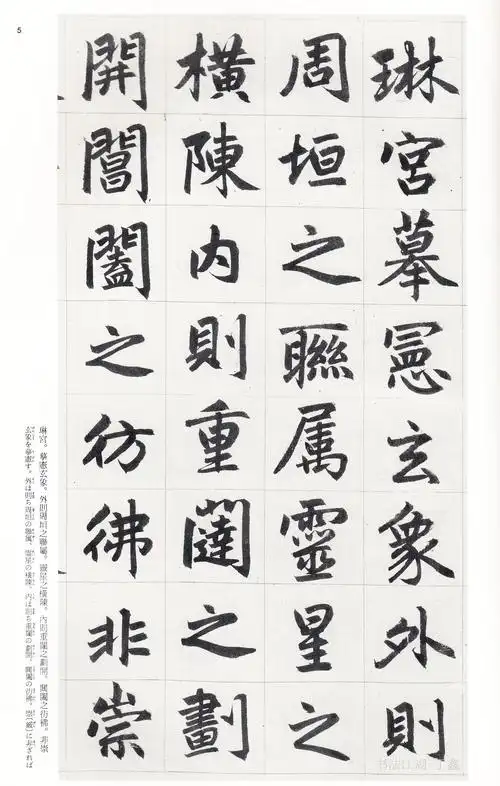 5
琳宮摹憲玄象外則
周垣之聯属靈星之
橫陳内則重闥之劃
開閶闔之彷彿非崇
琳宮。摹憲玄象。外則周垣之聯屬。靈星之橫陳。內則重闥之劃開。閶闔之彷彿。非崇
玄象を摹憲す。外は則ち周垣の聯属、靈星の橫陳、内は則ち重闥の劃開、閶闔の彷彿。崇(嚴)に非ざれば
书法江湖